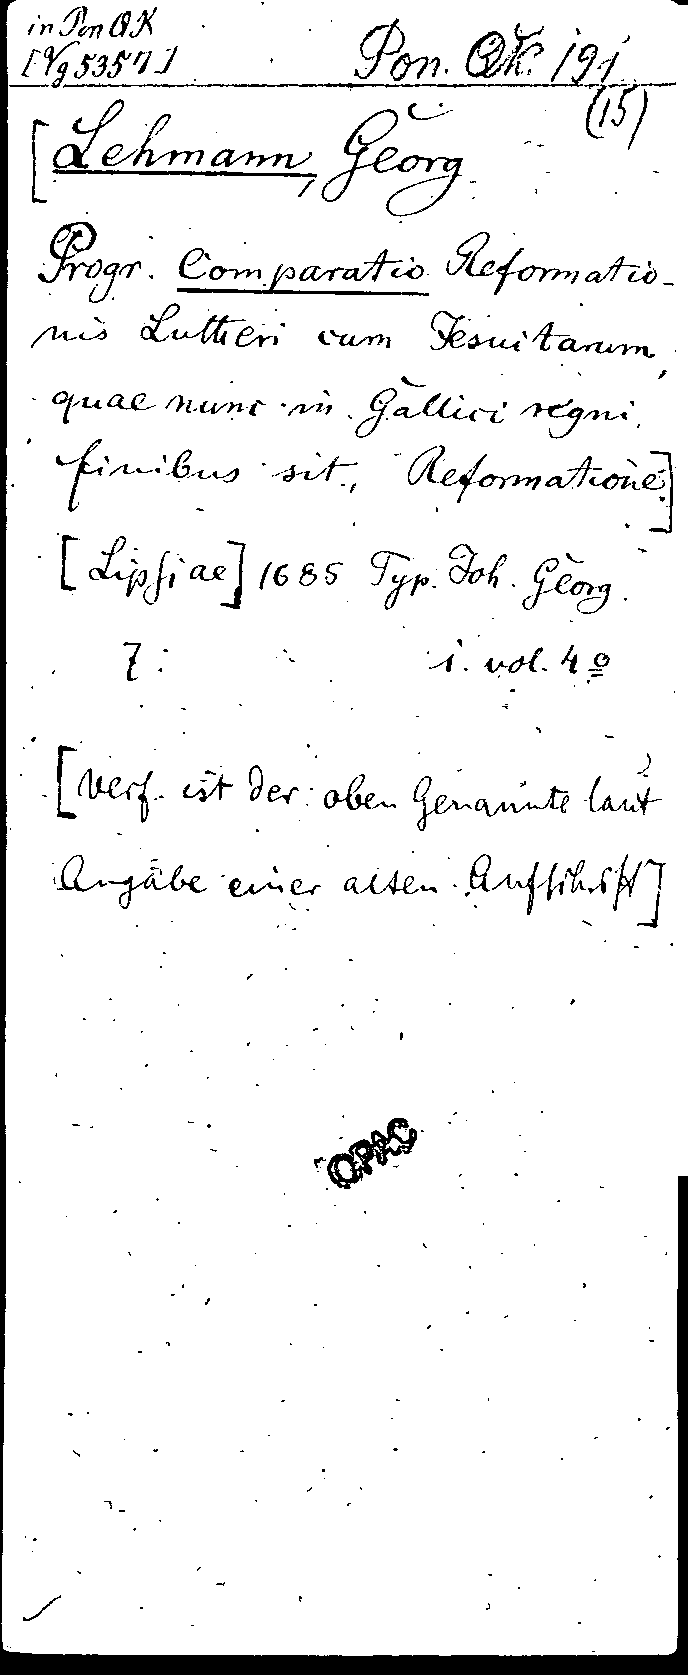 in Pon QK
[Vg 5357]
Pon. QK. 191
(15)
[Lehmann, Georg
Progr. Comparatio Reformatio-
nis Lutheri cum Jesuitarum,
quae nunc in Gallici regni
finibus sit, Reformatione.]
[Lipsiae] 1685 Typ. Joh. Georg.
7: 1. vol. 4o
[Verf. ist der oben Genannte laut
Angabe einer alten Aufschrift]
OPAC